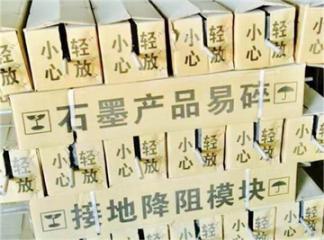 小心轻放 小心轻放 小心轻放 小心轻放 小心轻放
石墨产品易碎
小心轻放 小心轻放 小心轻放 小心轻放 小心轻放
接地降阻模块